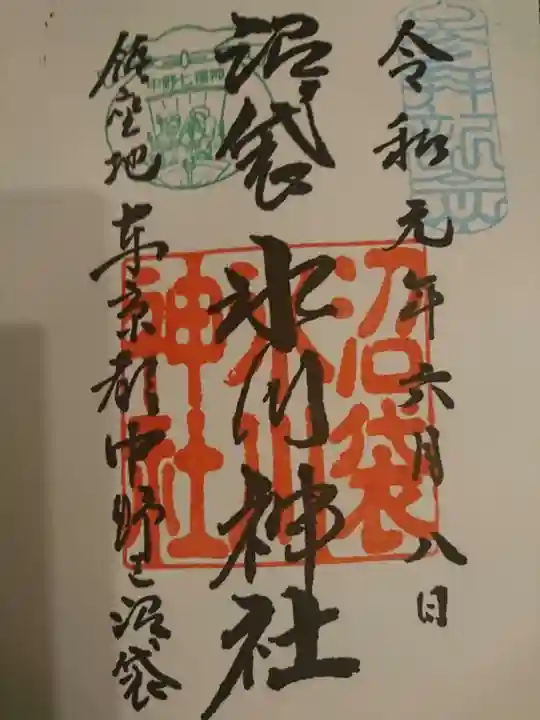 令和元年六月八日
沼袋氷川神社
鎮座地 東京都中野区沼袋
参拝記念
中野七福神
沼袋
氷川
神社